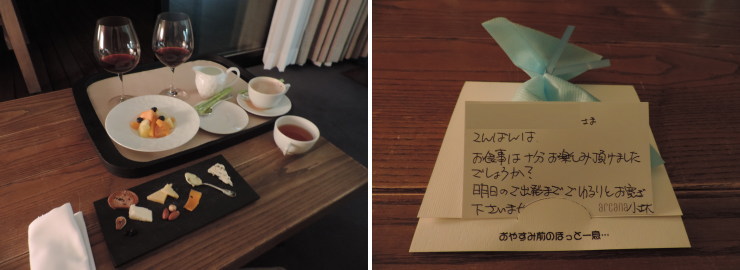 さま
こんばんは
お食事は十分お楽しみ頂けました
でしょうか？
明日のご出発までごゆるりとお寛ぎ
下さいませ
arcana 小林
おやすみ前のほっと一息…